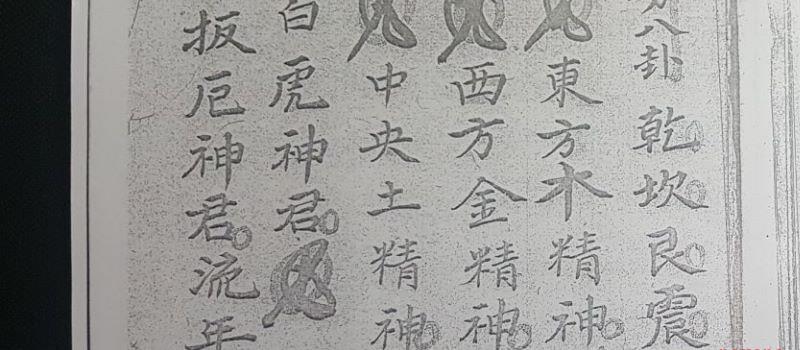 八卦乾。坎。艮。震。
東方木精神。
西方金精神。
中央土精神。
白虎神君。
扳厄神君。流年